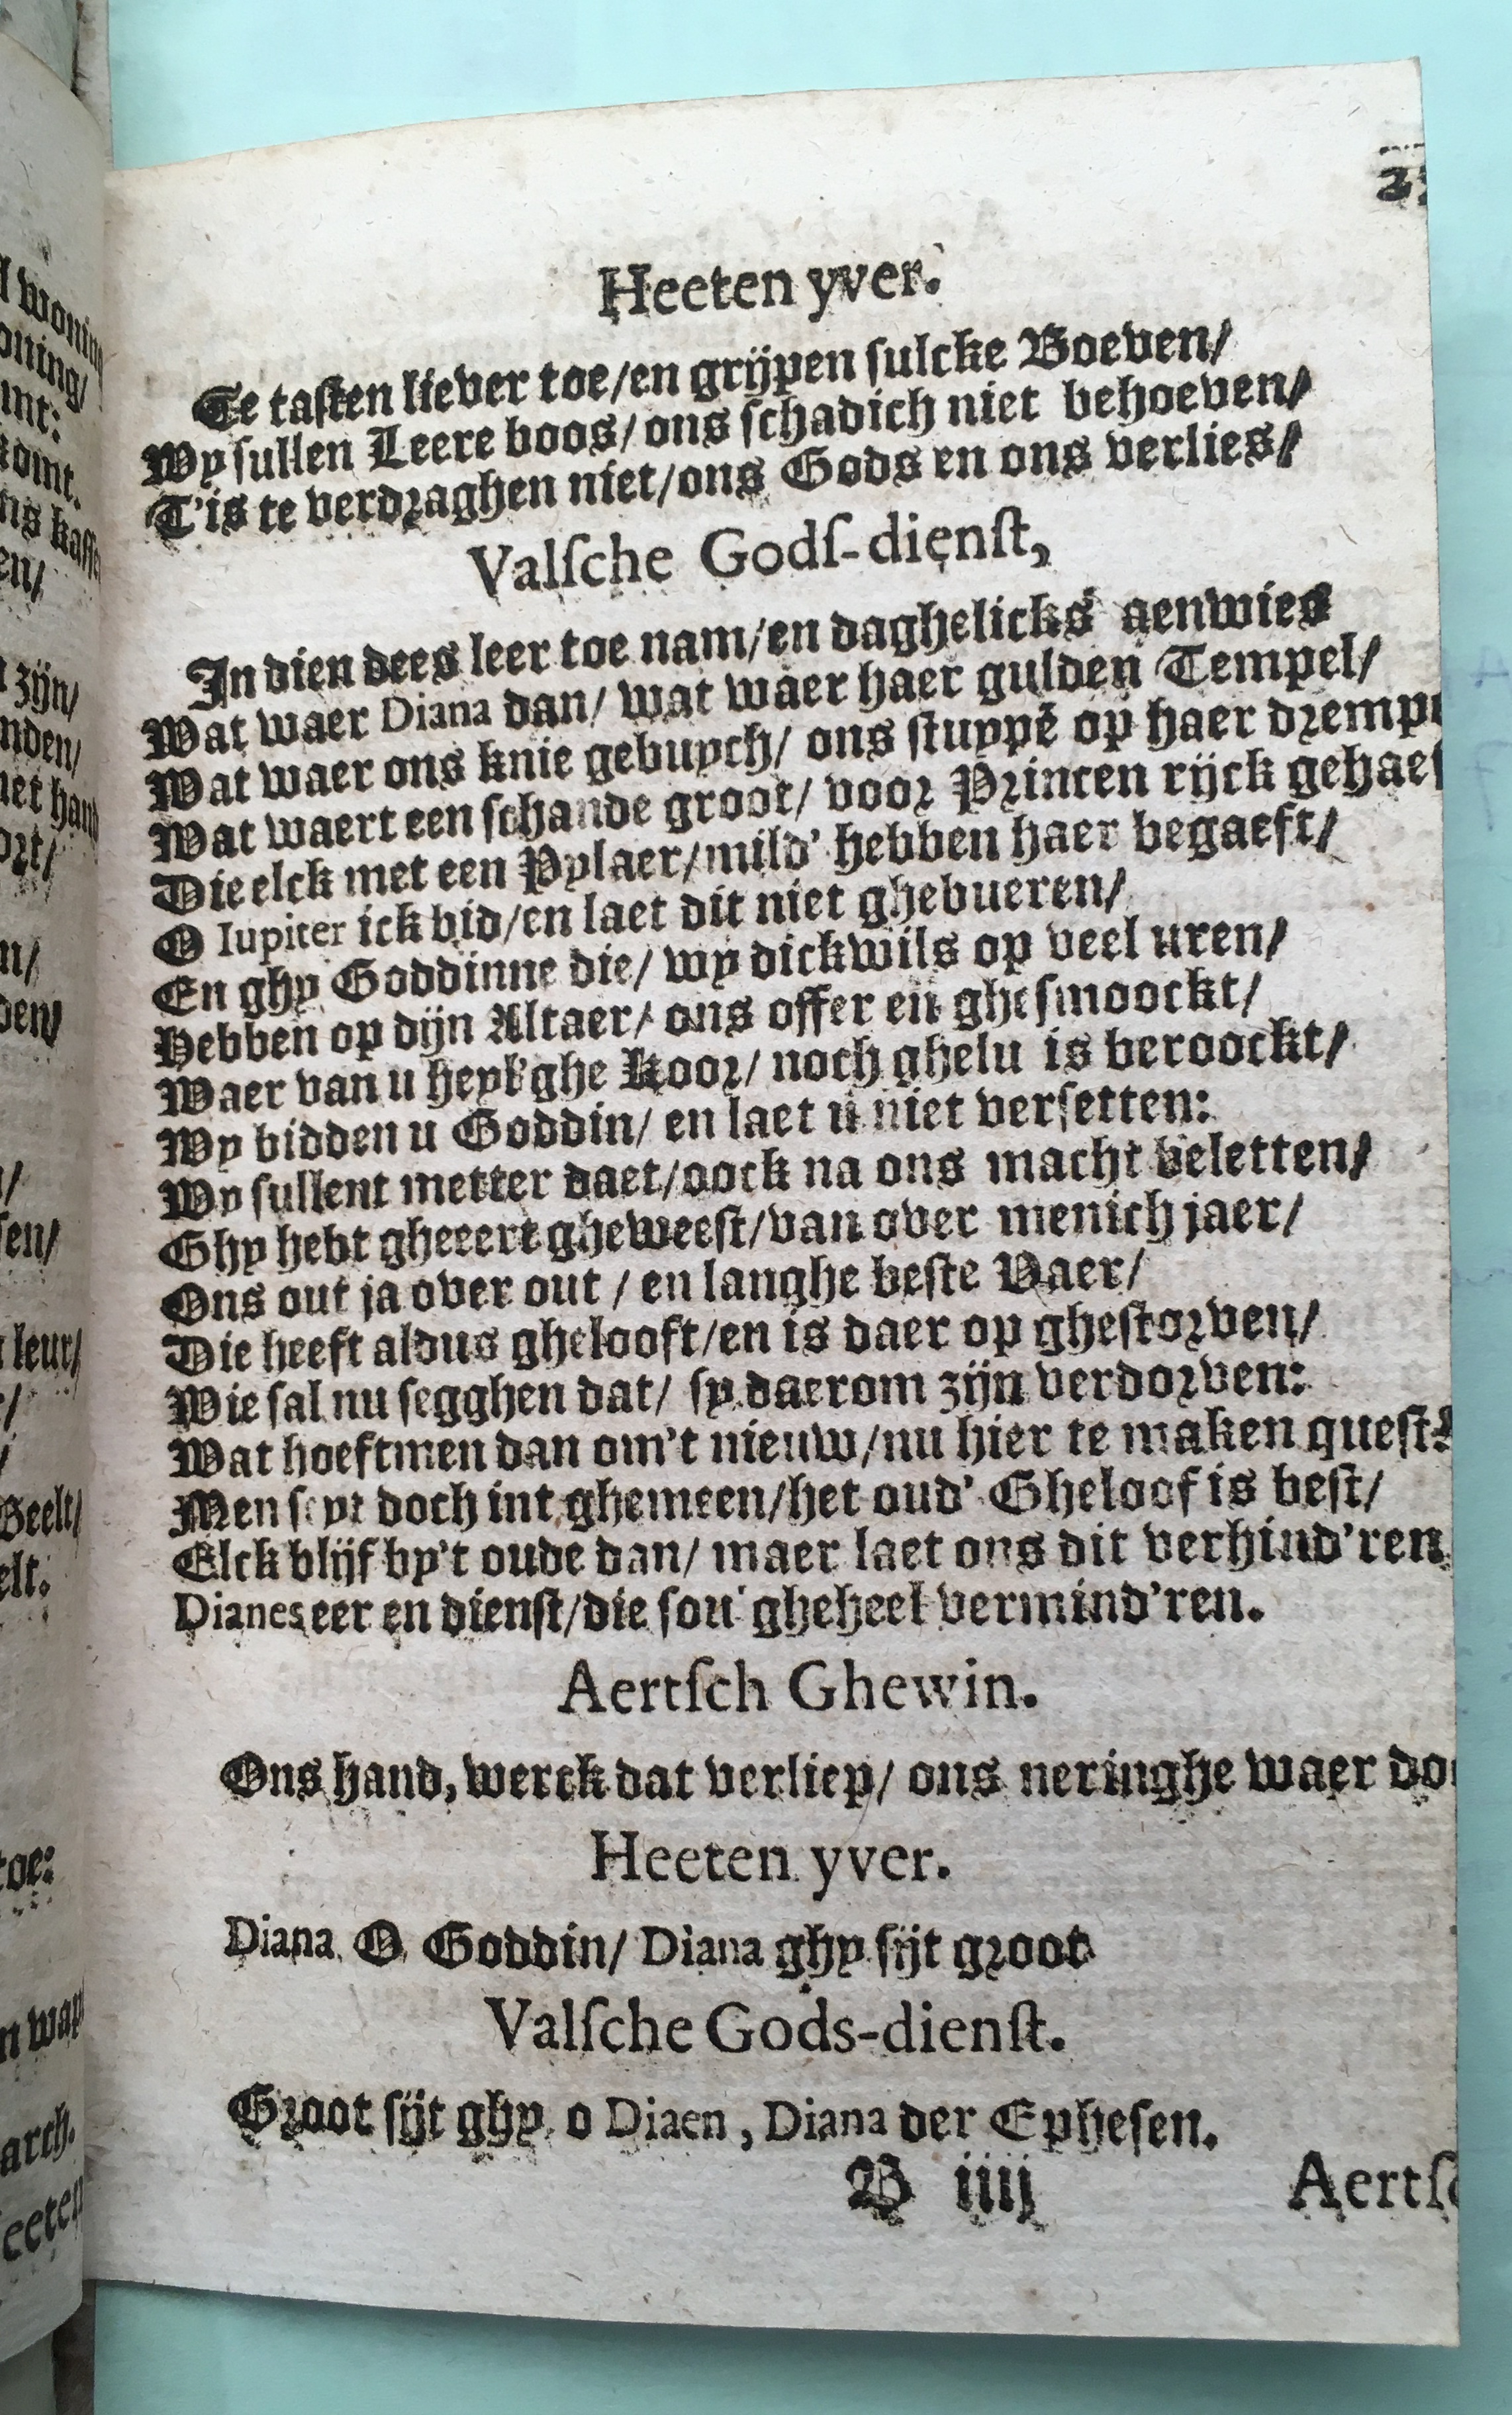 Heeten yver.
Te tasten liever toe/en grijpen sulcke Boeven/
Wy sullen Leere boos/ons schadich niet behoeven/
T'is te verdraghen niet/ons Gods en ons verlies/
Valsche Gods-dienst,
In dien dees leer toe nam/en daghelicks aenwies
Wat waer Diana dan/ wat waer haer gulden Tempel/
Wat waer ons knie gebuych/ ons stuppē op haer drempe
Wat waert een schande groot/ voor Princen rijck gehaef
Die elck met een Pylaer/mild' hebben haer begaeft/
O Iupiter ick bid/en laet dit niet ghebueren/
En ghy Goddinne die/ wy dickwils op veel uren/
Hebben op dijn Altaer/ ons offer en ghesmoockt/
Waer van u heyl'ghe Koor/ noch ghelu is beroockt/
Wy bidden u Goddin/ en laet u niet versetten:
Wy sullent metter daet/oock na ons macht beletten/
Ghy hebt gheeert gheweest/van over menich jaer/
Ons out ja over out / en langhe beste Vaer/
Die heeft aldus ghelooft/en is daer op ghestorven/
Wie sal nu segghen dat/ sy daerom zijn verdorven:
Wat hoeftmen dan om't nieuw/nu hier te maken quest?
Men seyt doch int ghemeen/het oud' Gheloof is best/
Elck blijf by't oude dan/ maer laet ons dit verhind'ren
Dianes eer en dienst/die sou gheheel vermind'ren.
Aertsch Ghewin.
Ons hand, werck dat verliep/ ons neringhe waer doo
Heeten yver.
Diana O Goddin/ Diana ghy sijt groot
Valsche Gods-dienst.
Groot sijt ghy o Diaen, Diana der Ephesen.
B iiij Aertsc